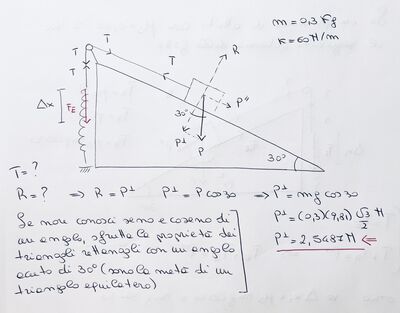 m = 0,3 Kg
K = 60 N/m
T
R
T
T
T
Δx
FE
P"
30°
P⊥
P
30°
T = ?
R = ? ⇒ R = P⊥ P⊥ = P cos30 ⇒ P⊥ = mg cos30
P⊥ = (0,3)(9,81) √3/2 N
P⊥ = 2,5487 N ⇐
Se non conosci seno e coseno di
un angolo, sfrutta le proprietà dei
triangoli rettangoli con un angolo
acuto di 30° (sono la metà di un
triangolo equilatero)